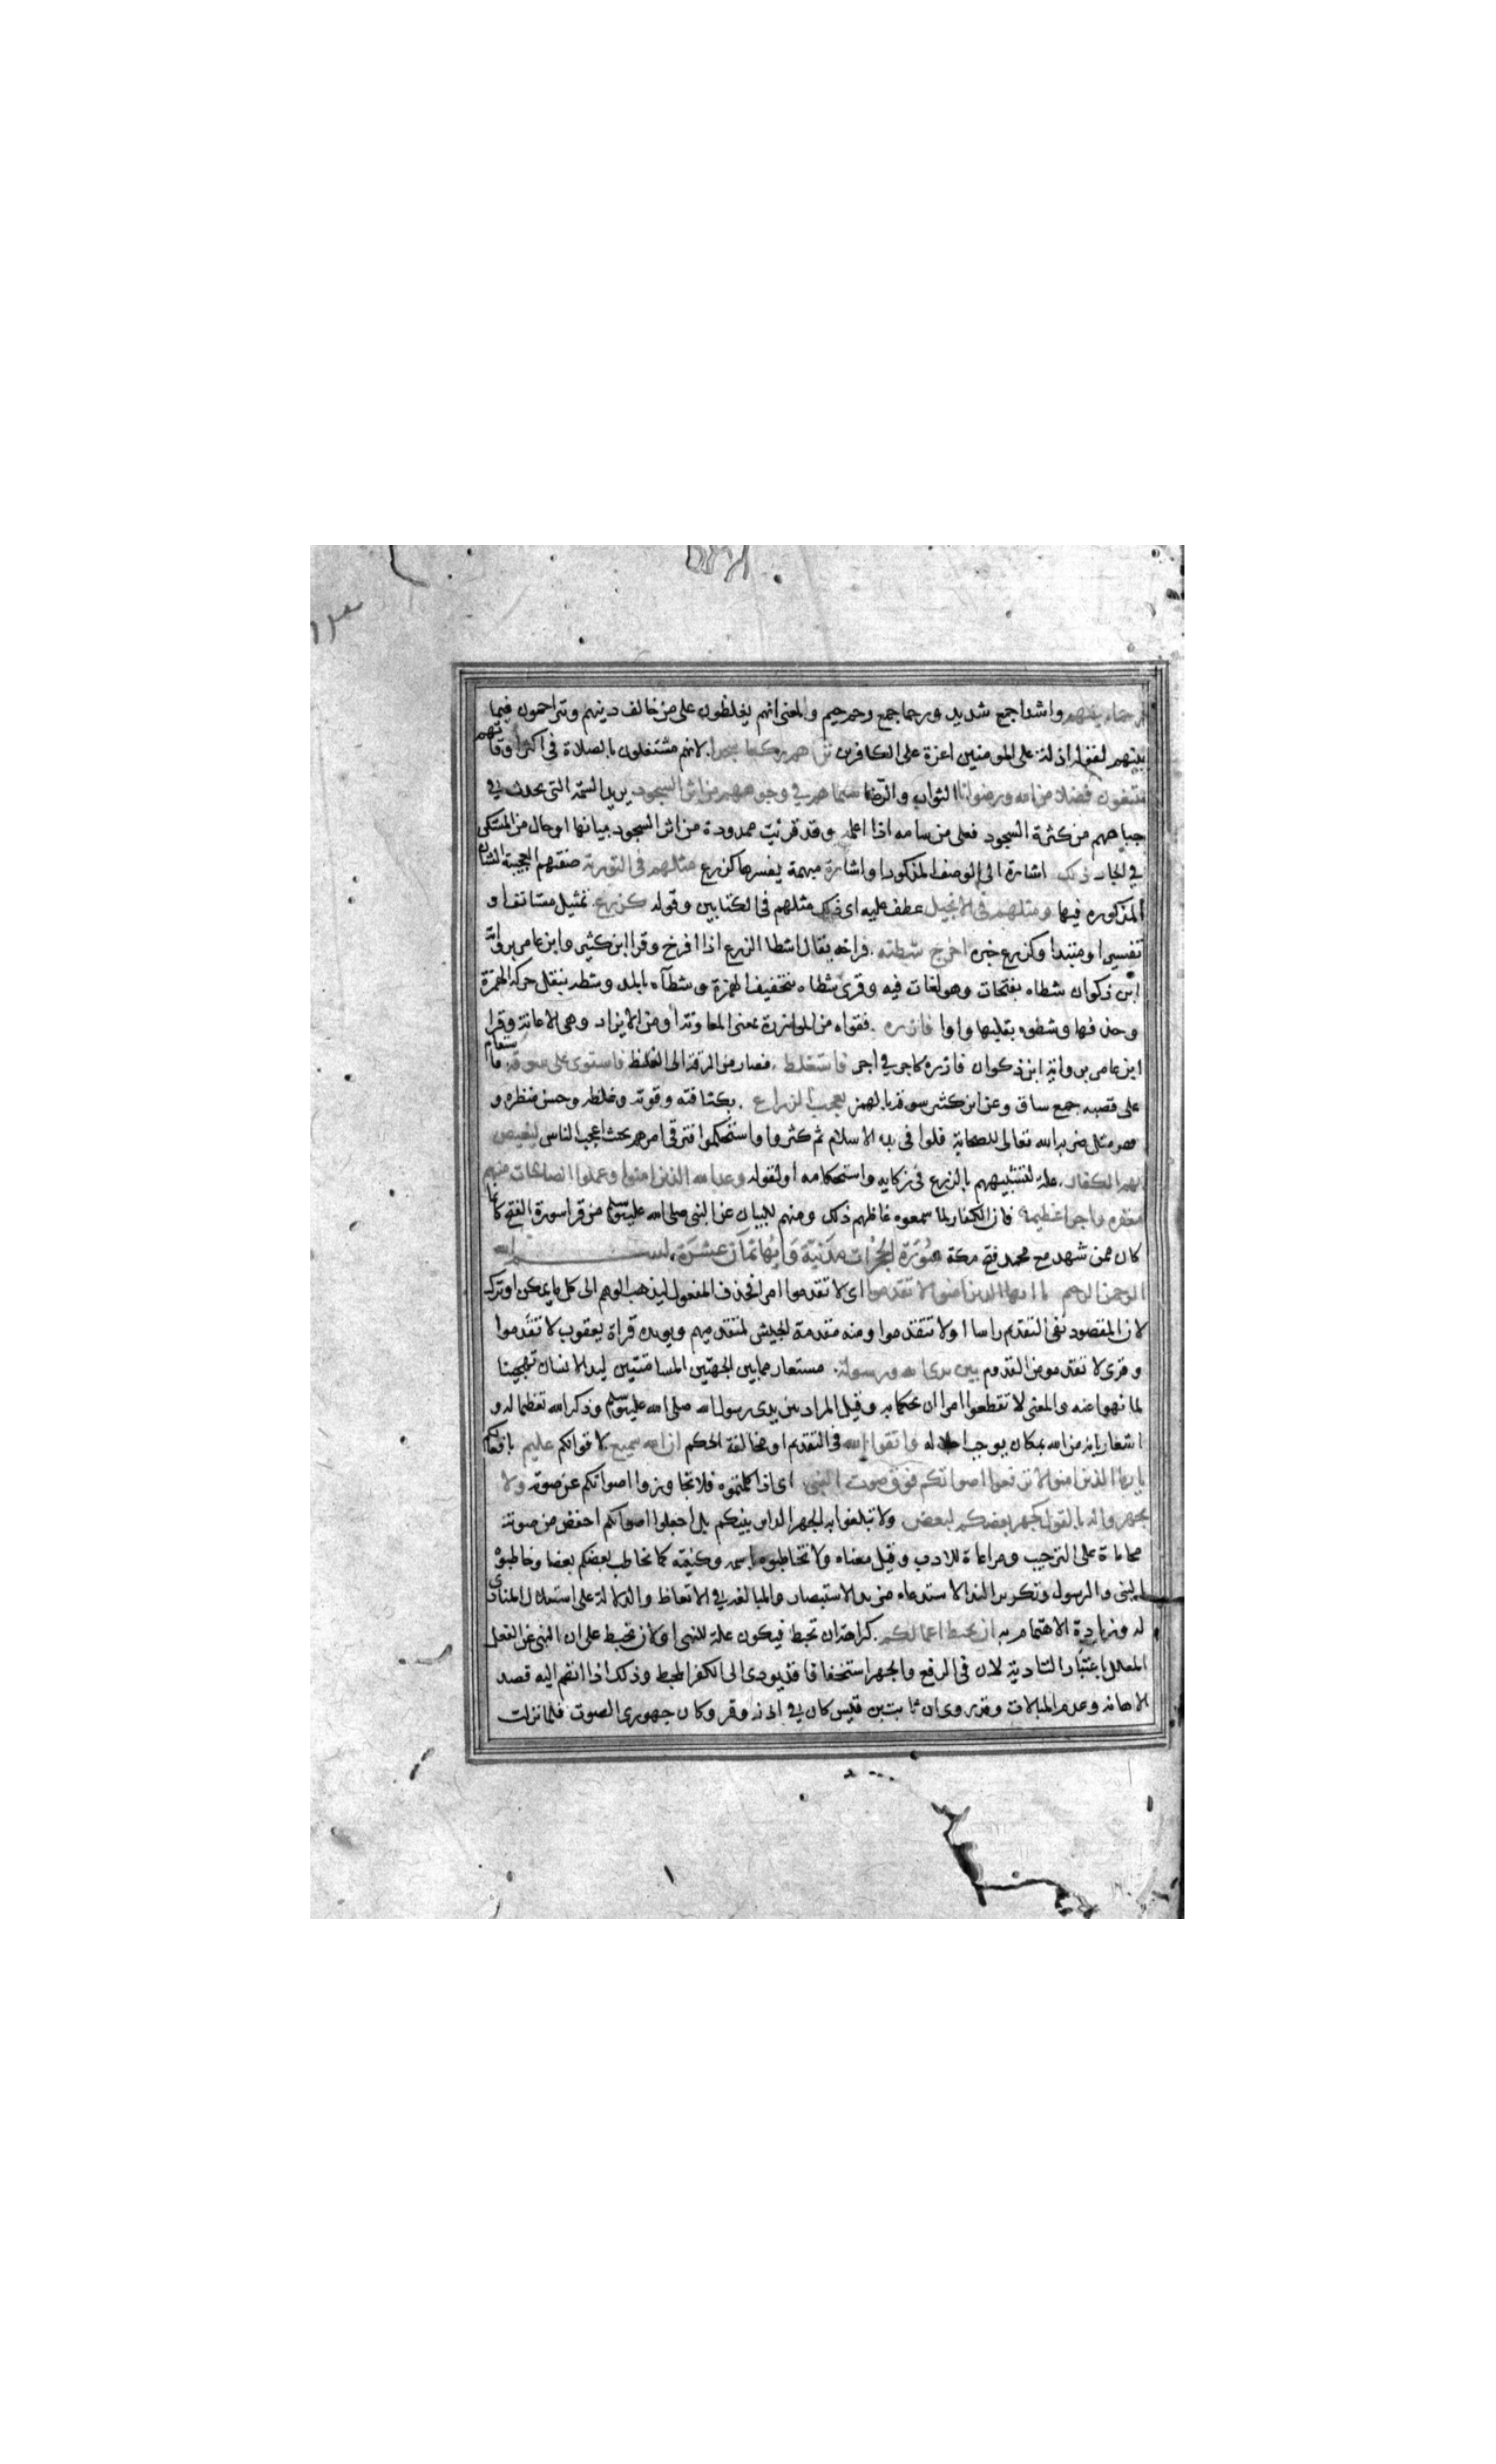 رحماء بينهم واشدا جمع شديد ورحما جمع رحيم والمعنى انهم يغلظون على من خالف دينهم ويتراحمون فيما
بينهم لقوله اذلة على المومنين اعزة على الكافرين تراهم ركعا سجدا لانهم مشتغلون بالصلاة في اكثر اوقاتهم
يبتغون فضلا من الله ورضوانا الثواب والرضا سيماهم في وجوههم من اثر السجود يريد السمة التي تحدث في
جباههم من كثرة السجود فعلى من سامه اذا اعلمه وقد قرئت ممدودة من اثر السجود بيانها او حال من المستكن
في الجار ذلك اشارة الى الوصف المذكور او اشارة مبهمة يفسرها كزرع مثلهم في التورية صفتهم العجيبة الشان
المذكوره فيها ومثلهم في الانجيل عطف عليه اى ذلك مثلهم في الكتابين وقوله كزرع تمثيل مستانف او
تفسير او مبتدا وكزرع خبره اخرج شطئه فراخه يقال اشطا الزرع اذا افرخ وقرا ابن كثير وابن عامر برواية
ابن ذكوان شطاه بفتحات وهو لغات فيه وقرى شطاه بتخفيف الهمزة وشطآه بالمد وشطه بنقل حركة الهمزة
وحذفها وشطوه بقلبها واوا فازره فقواه من الموازرة بمعنى المعاونة او من الايزار وهى الاعانة وقرا
ابن عامر برواية ابن ذكوان فازره كاجر في اجر فاستغلظ فصار من الرقة الى الغلظ فاستوى على سوقه فاستقام
على قصبه جمع ساق وعن ابن كثير سوقه بالهمز يعجب الزراع بكثافته وقوته وغلظه وحسن منظره و
هو مثل ضربه الله تعالى للصحابة قلوا في بدء الاسلام ثم كثروا واستحكموا فترقى امرهم بحيث اعجب الناس ليغيض
بهم الكفار علة لتشبيههم بالزرع في زكايه واستحكامه او لقوله وعد الله الذين امنوا وعملوا الصالحات منهم
مغفره واجرا عظيما فان الكفار لما سمعوه غاظهم ذلك ومنهم للبيان عن النبي صلى الله عليه وسلم من قرا سورة الفتح كانما
كان ممن شهد مع محمد فتح مكة سورة الحجرات مدنية وايها ثمان عشرة بسم الله
الرحمن الرحيم يا ايها الذين امنوا لا تقدموا اى لا تقدموا امرا فحذف المفعول ليذهب الوهم الى كل ما يمكن او ترك
لان المقصود نفى التقدم راسا او لا تتقدموا ومنه مقدمة الجيش لمتقدميهم ويويده قراة يعقوب لا تقدموا
وقرى لا تقدموا من القدوم بين يدى الله ورسوله مستعار مما بين الجهتين المسامتتين ليد الانسان تهجينا
لما نهوا عنه والمعنى لا تقطعوا امرا ان يحكما به وقيل المراد بين يدى رسول الله صلى الله عليه وسلم وذكر الله تعظيما له و
اشعار بانه من الله بمكان يوجب اجلاله واتقوا الله في التقديم او مخالفة الحكم ان الله سميع لاقوالكم عليم بافعالكم
يا ايها الذين امنوا لا ترفعوا اصواتكم فوق صوت النبى اى اذا كلمتموه فلا تجاوزوا اصواتكم عن صوته ولا
تجهروا له بالقول كجهر بعضكم لبعض ولا تبلغوا به الجهر الداير بينكم بل اجعلوا اصواتكم اخفض من صوته
محاماة على الترجيب ومراعاة للادب وقيل معناه ولا تخاطبوه باسمه وكنيته كما يخاطب بعضكم بعضا وخاطبوه
بالنبى والرسول وتكرير الندا لاستدعاء مزيد الاستبصار والمبالغة في الاتعاظ والدلالة على استقلال المنادى
له وزيادة الاهتمام به ان تحبط اعمالكم كراهة ان تحبط فيكون علة للنهى او لان تحبط على ان النهى عن الفعل
المعلل باعتبار التادية لان في الرفع والجهر استخفافا قد يودى الى الكفر المحبط وذلك اذا انضم اليه قصد
الاهانة وعدم المبالات وقد روى ان ثابت بن قيس كان في اذنه وقر وكان جهورى الصوت فلما نزلت